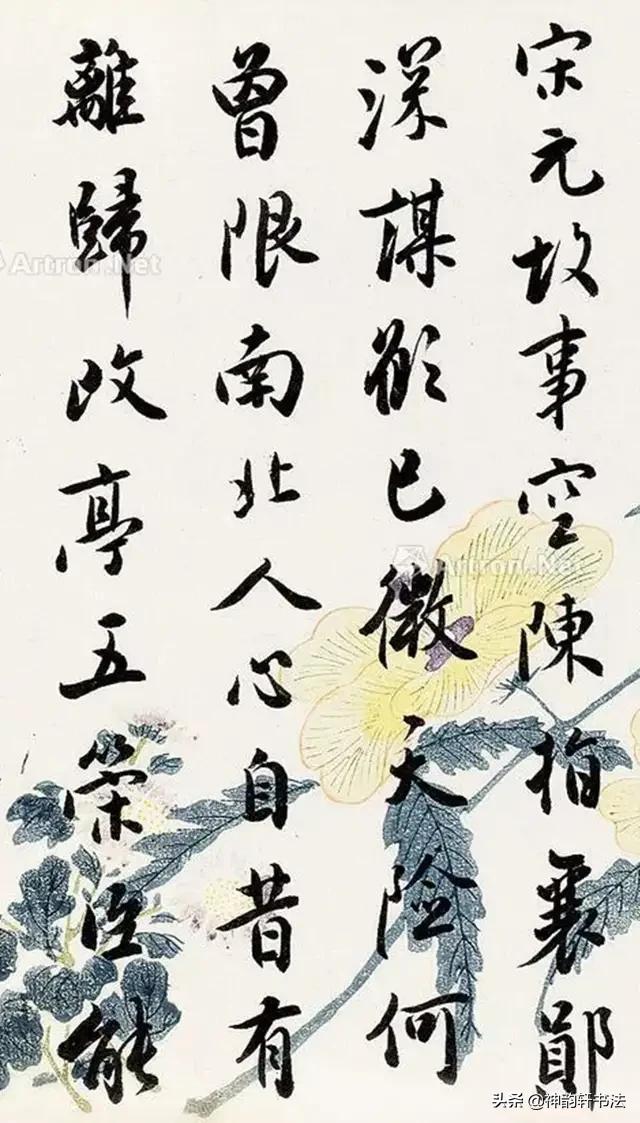 宋元故事空陳指襄鄖
深謀欲已微天險何
曾限南北人心自昔有
離歸改亭五策臣能
Artron.Net
Artron.Net
头条 @神韵轩书法